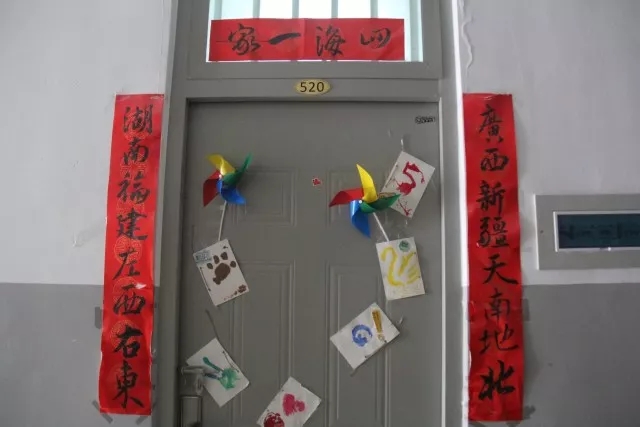 家一海四
520
湖南福建左西右东
廣西新疆天南地北